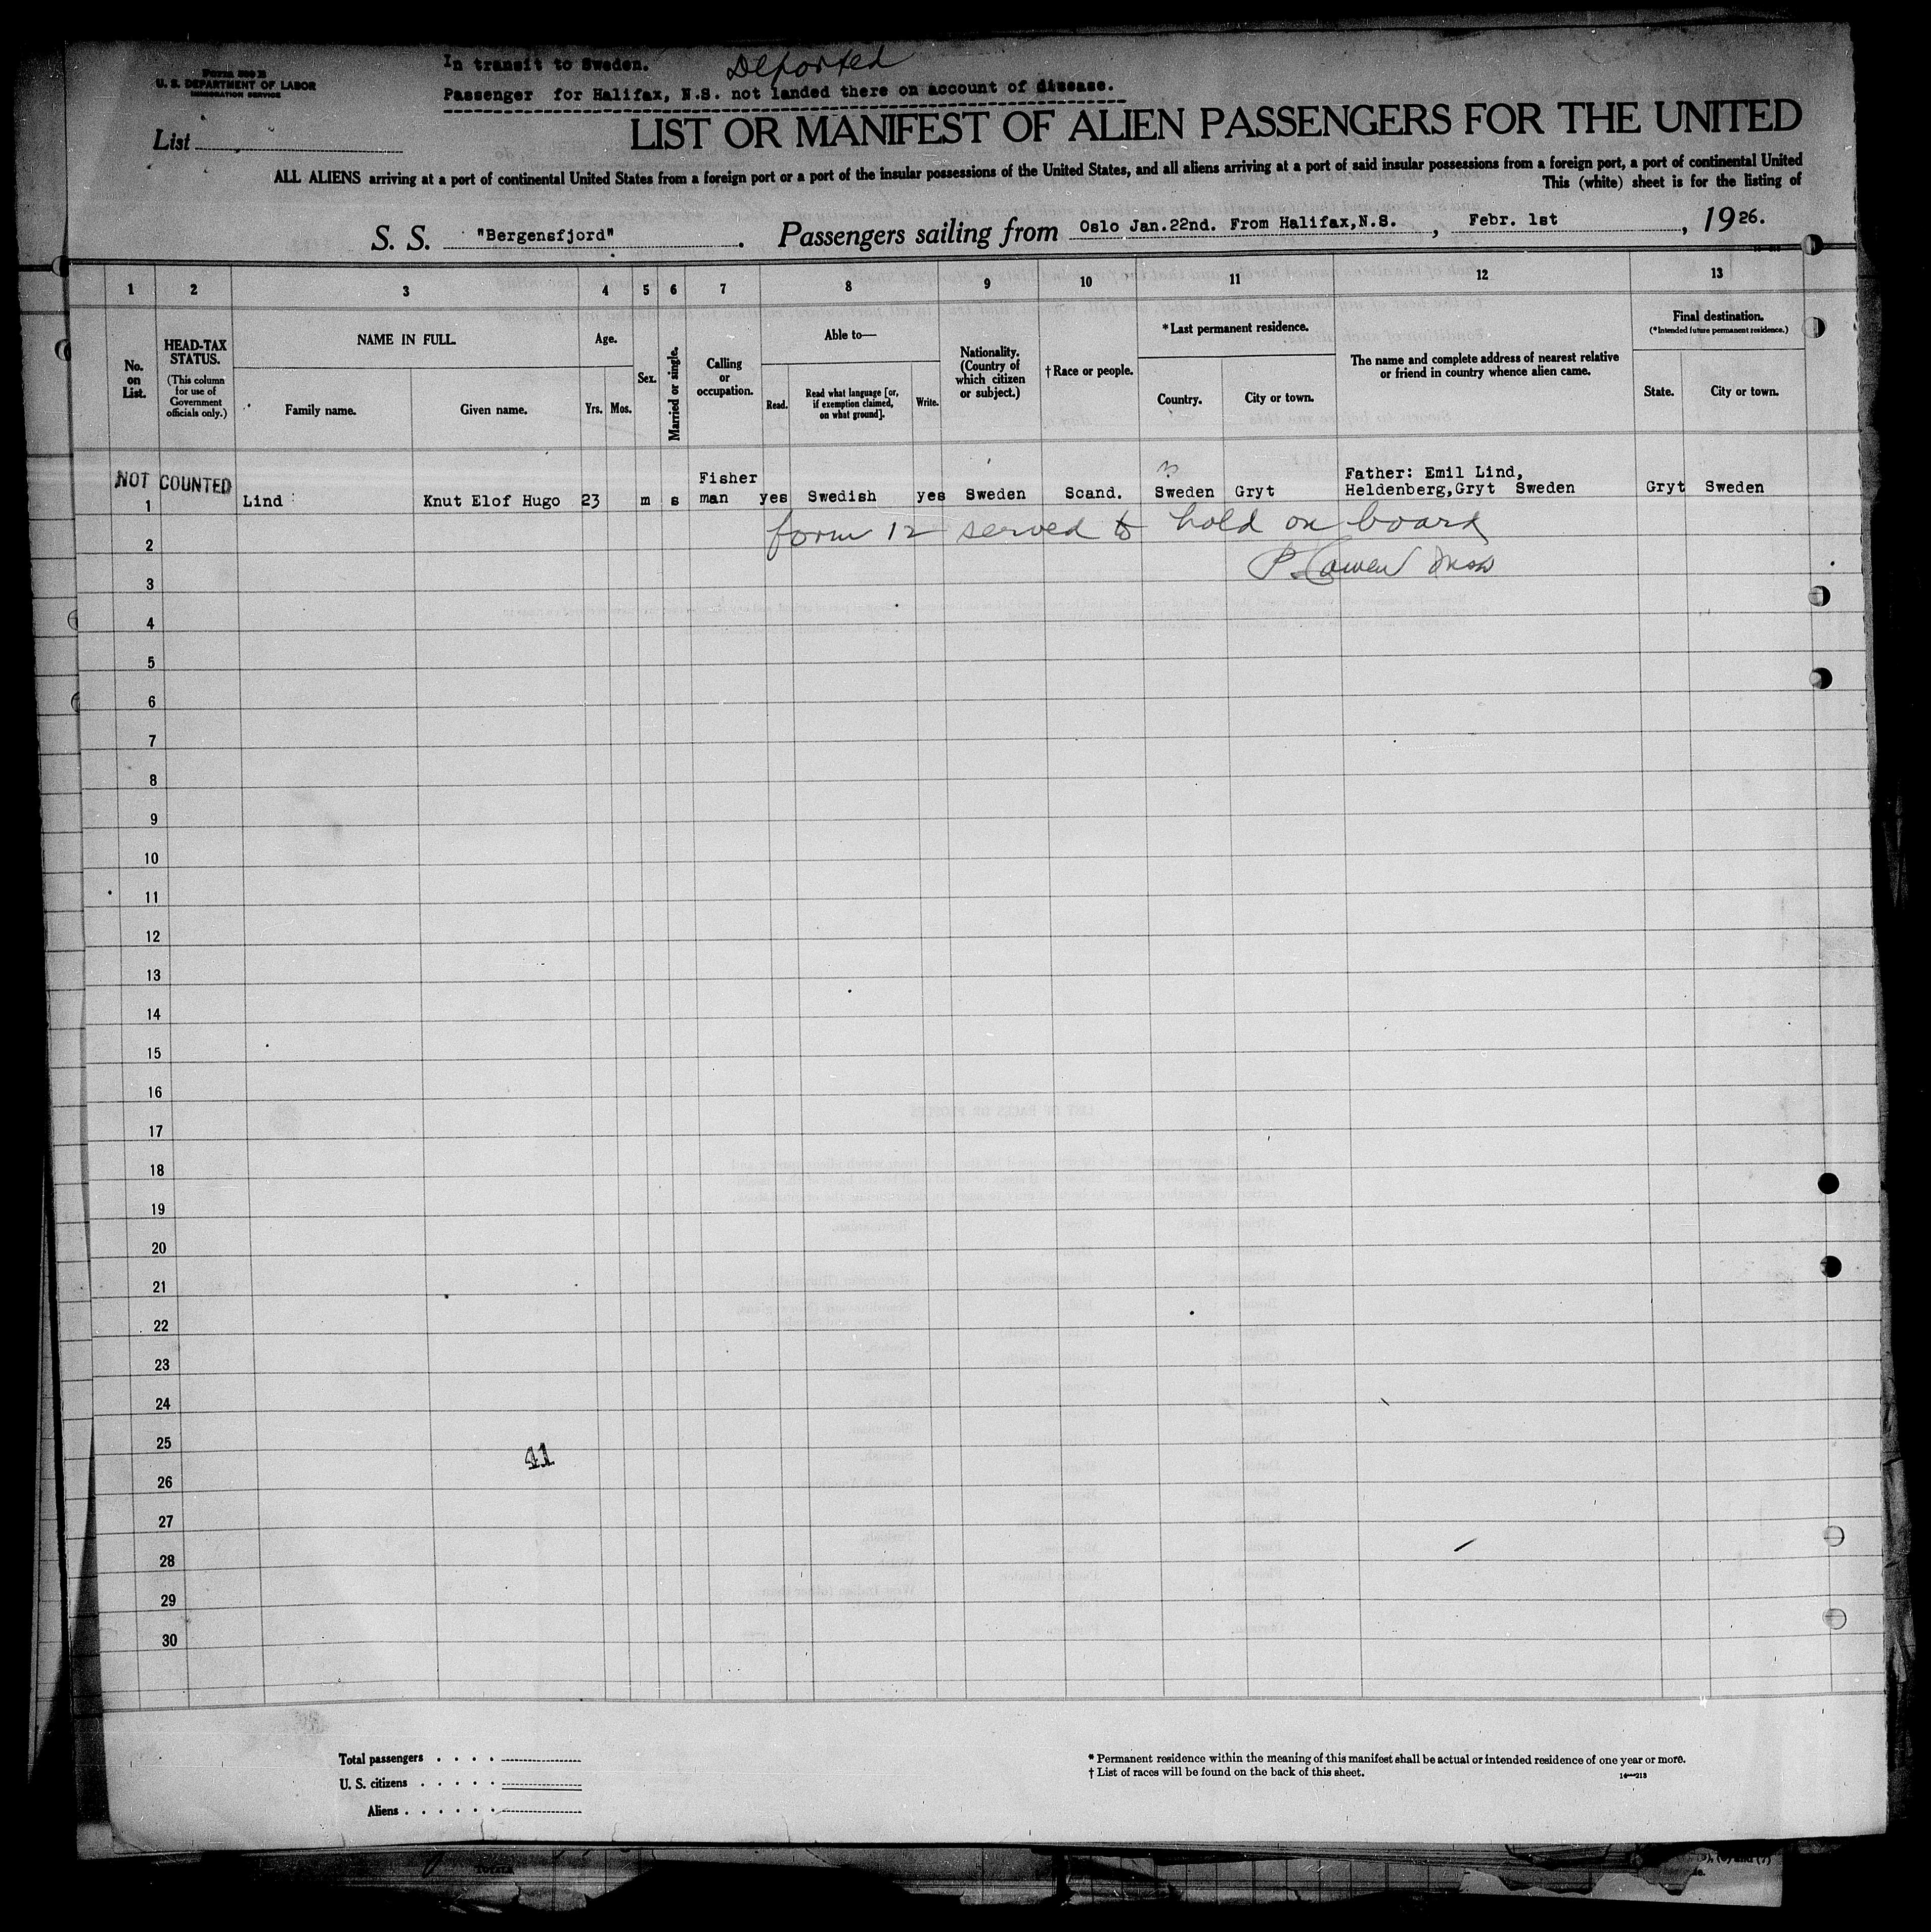 In transit to Sweden. Deported
Form 500 B
U. S. DEPARTMENT OF LABOR
IMMIGRATION SERVICE
Passenger for Halifax, N.S. not landed there on account of disease.
List
LIST OR MANIFEST OF ALIEN PASSENGERS FOR THE UNITED
ALL ALIENS arriving at a port of continental United States from a foreign port or a port of the insular possessions of the United States, and all aliens arriving at a port of said insular possessions from a foreign port, a port of continental United
This (white) sheet is for the listing of
S. S. "Bergensfjord". Passengers sailing from Oslo Jan.22nd. From Halifax,N.S. , Febr. 1st , 1926.
1 2 3 4 5 6 7 8 9 10 11 12 13
No. on List.
HEAD-TAX STATUS.
(This column for use of Government officials only.)
NAME IN FULL.
Family name. Given name.
Age.
Yrs. Mos.
Sex.
Married or single.
Calling or occupation.
Able to—
Read. Read what language [or, if exemption claimed, on what ground]. Write.
Nationality. (Country of which citizen or subject.)
†Race or people.
*Last permanent residence.
Country. City or town.
The name and complete address of nearest relative or friend in country whence alien came.
Final destination.
(*Intended future permanent residence.)
State. City or town.
NOT COUNTED
1 Lind Knut Elof Hugo 23 m s Fisher man yes Swedish yes Sweden Scand. Sweden Gryt Father: Emil Lind, Heldenberg,Gryt Sweden Gryt Sweden
2 form 12 served to hold on board
3 P. Cowen
4
5
6
7
8
9
10
11
12
13
14
15
16
17
18
19
20
21
22
23
24
25
41
26
27
28
29
30
Total passengers . . . .
U. S. citizens . . . . .
Aliens . . . . . .
* Permanent residence within the meaning of this manifest shall be actual or intended residence of one year or more.
† List of races will be found on the back of this sheet.